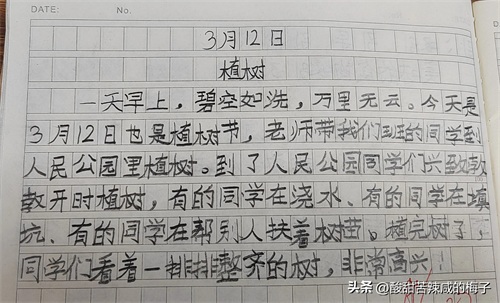 DATE: No.
3月12日
植树
一天早上，碧空如洗，万里无云。今天是
3月12日也是植树节，老师带我们班的同学到
人民公园里植树。到了人民公园同学们兴致勃
勃开时植树，有的同学在浇水、有的同学在填
坑、有的同学在帮别人扶着树苗。植完树了，
同学们看着一排排整齐的树，非常高兴！
头条 @酸甜苦辣咸的梅子